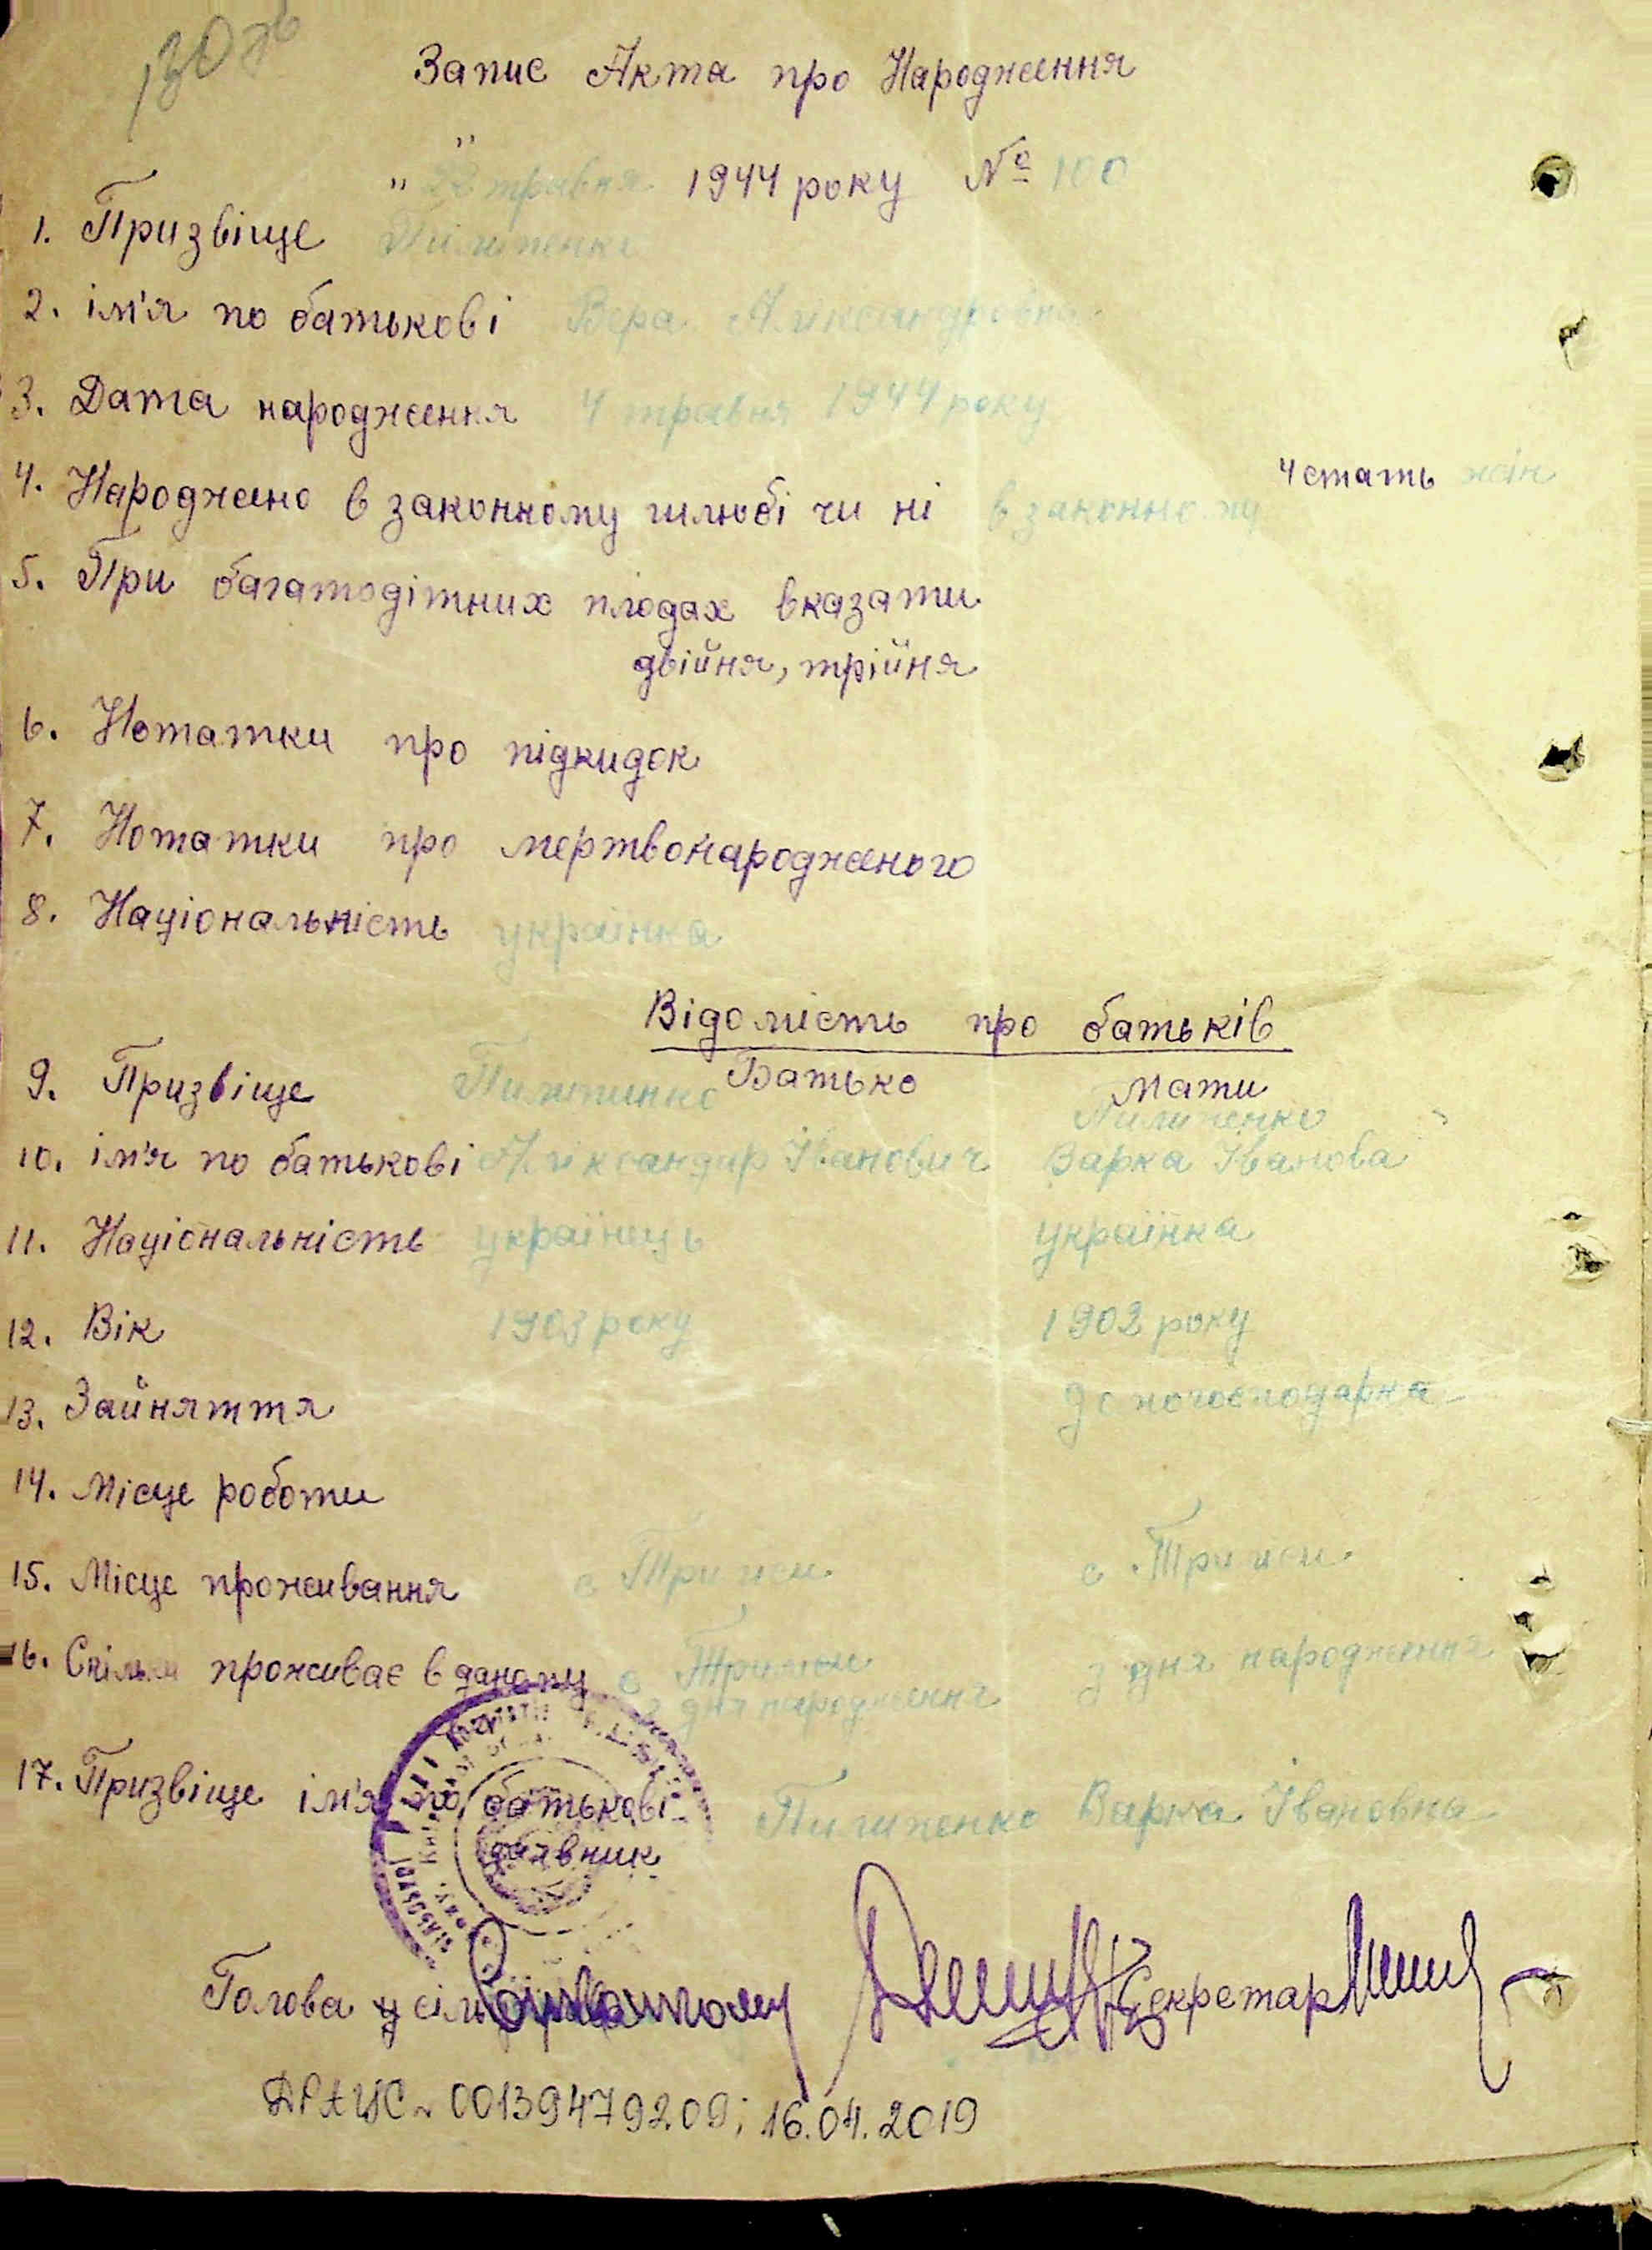 Запис Акта про Народження
" 22 травня 1944 року № 100
1. Призвіще Пилипенко
2. ім'я по батькові Вера Александровна
3. Дата народження 4 травня 1944 року
4 стать жін
4. Народжено в законному шлюбі чи ні в законному
5. При багатодітних плодах вказати
двійня, трійня
6. Нотатки про підкидок
7. Нотатки про мертвонародженого
8. Національність українка
Відомість про батьків
Батько Мати
9. Призвіще Пилипинко Пилипенко
10. ім'я по батькові Александир Іванович Варка Іванова
11. Національність українець українка
12. Вік 1903 року 1902 року
13. Зайняття
14. Місце роботи
15. Місце проживання с с
16. проживає в даному с з дня народження
з дня народження
17. Призвіще ім'я по батькові Пилипенко Варка Івановна
заявник
Голова Секретар
ДРАЦС 00139479209; 16.04.2019